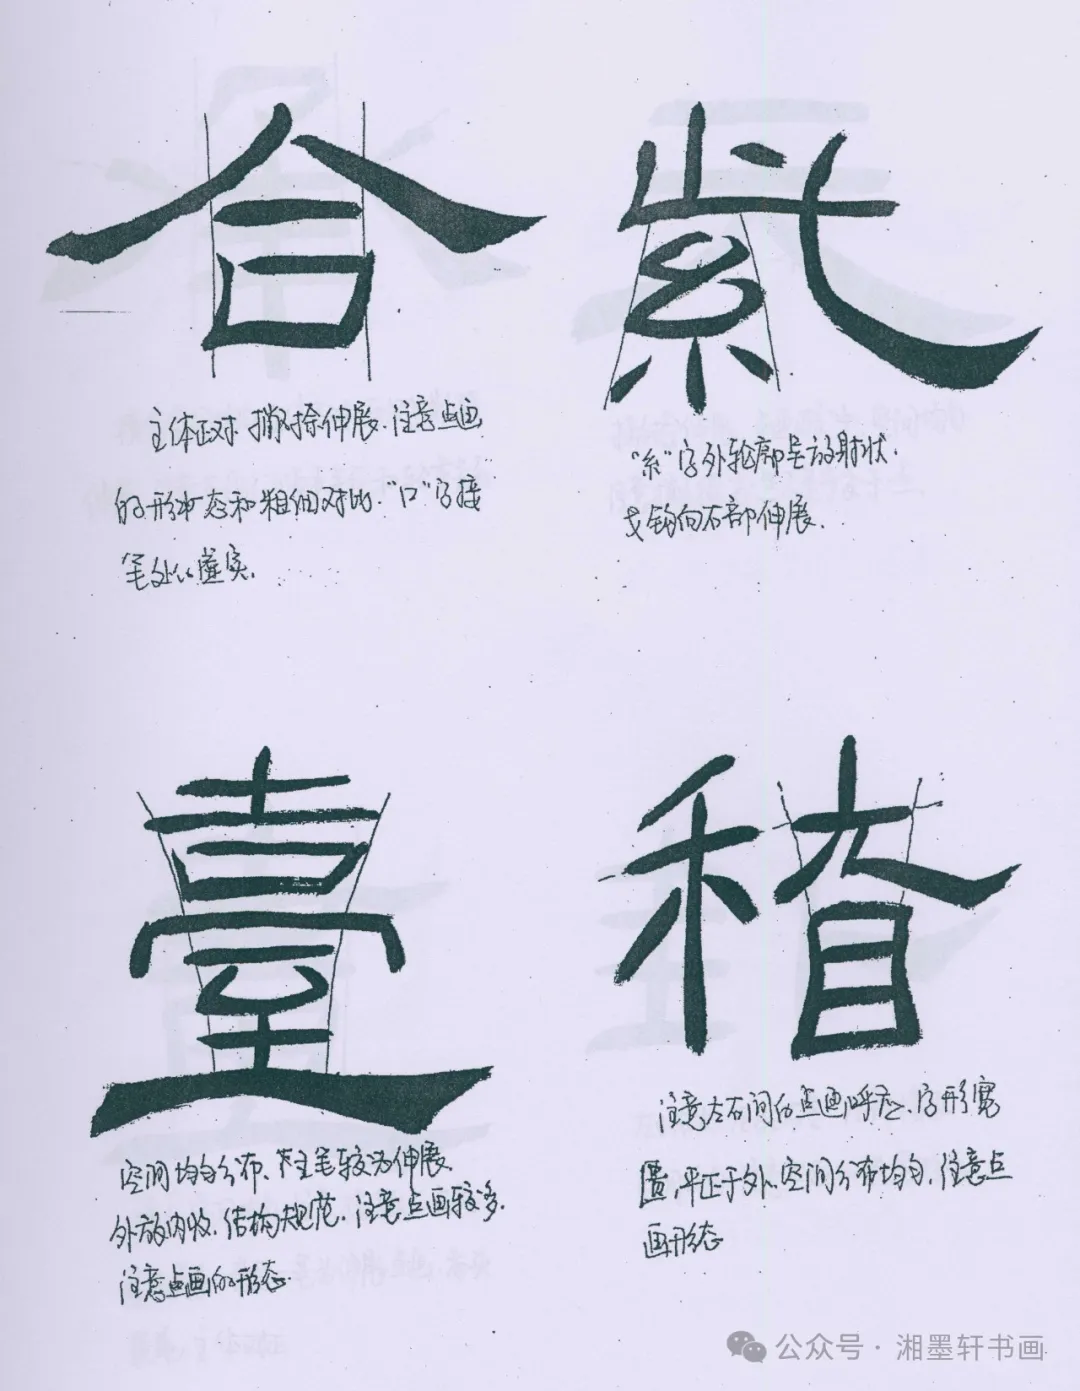 合
主体正对 撇捺伸展.注意点画
的形状态和粗细对比."口"字接
笔处的虚实.
"糸"字外轮廓呈放射状.
戈钩向右部伸展.
臺
空间均匀分布、主笔较为伸展、
外放内收.结构规范.注意点画较多.
注意点画的形态.
稽
注意左右间的点画呼应、字形宽
匾,平正于外.空间分布均匀.注意点
画形态
公众号·湘墨轩书画